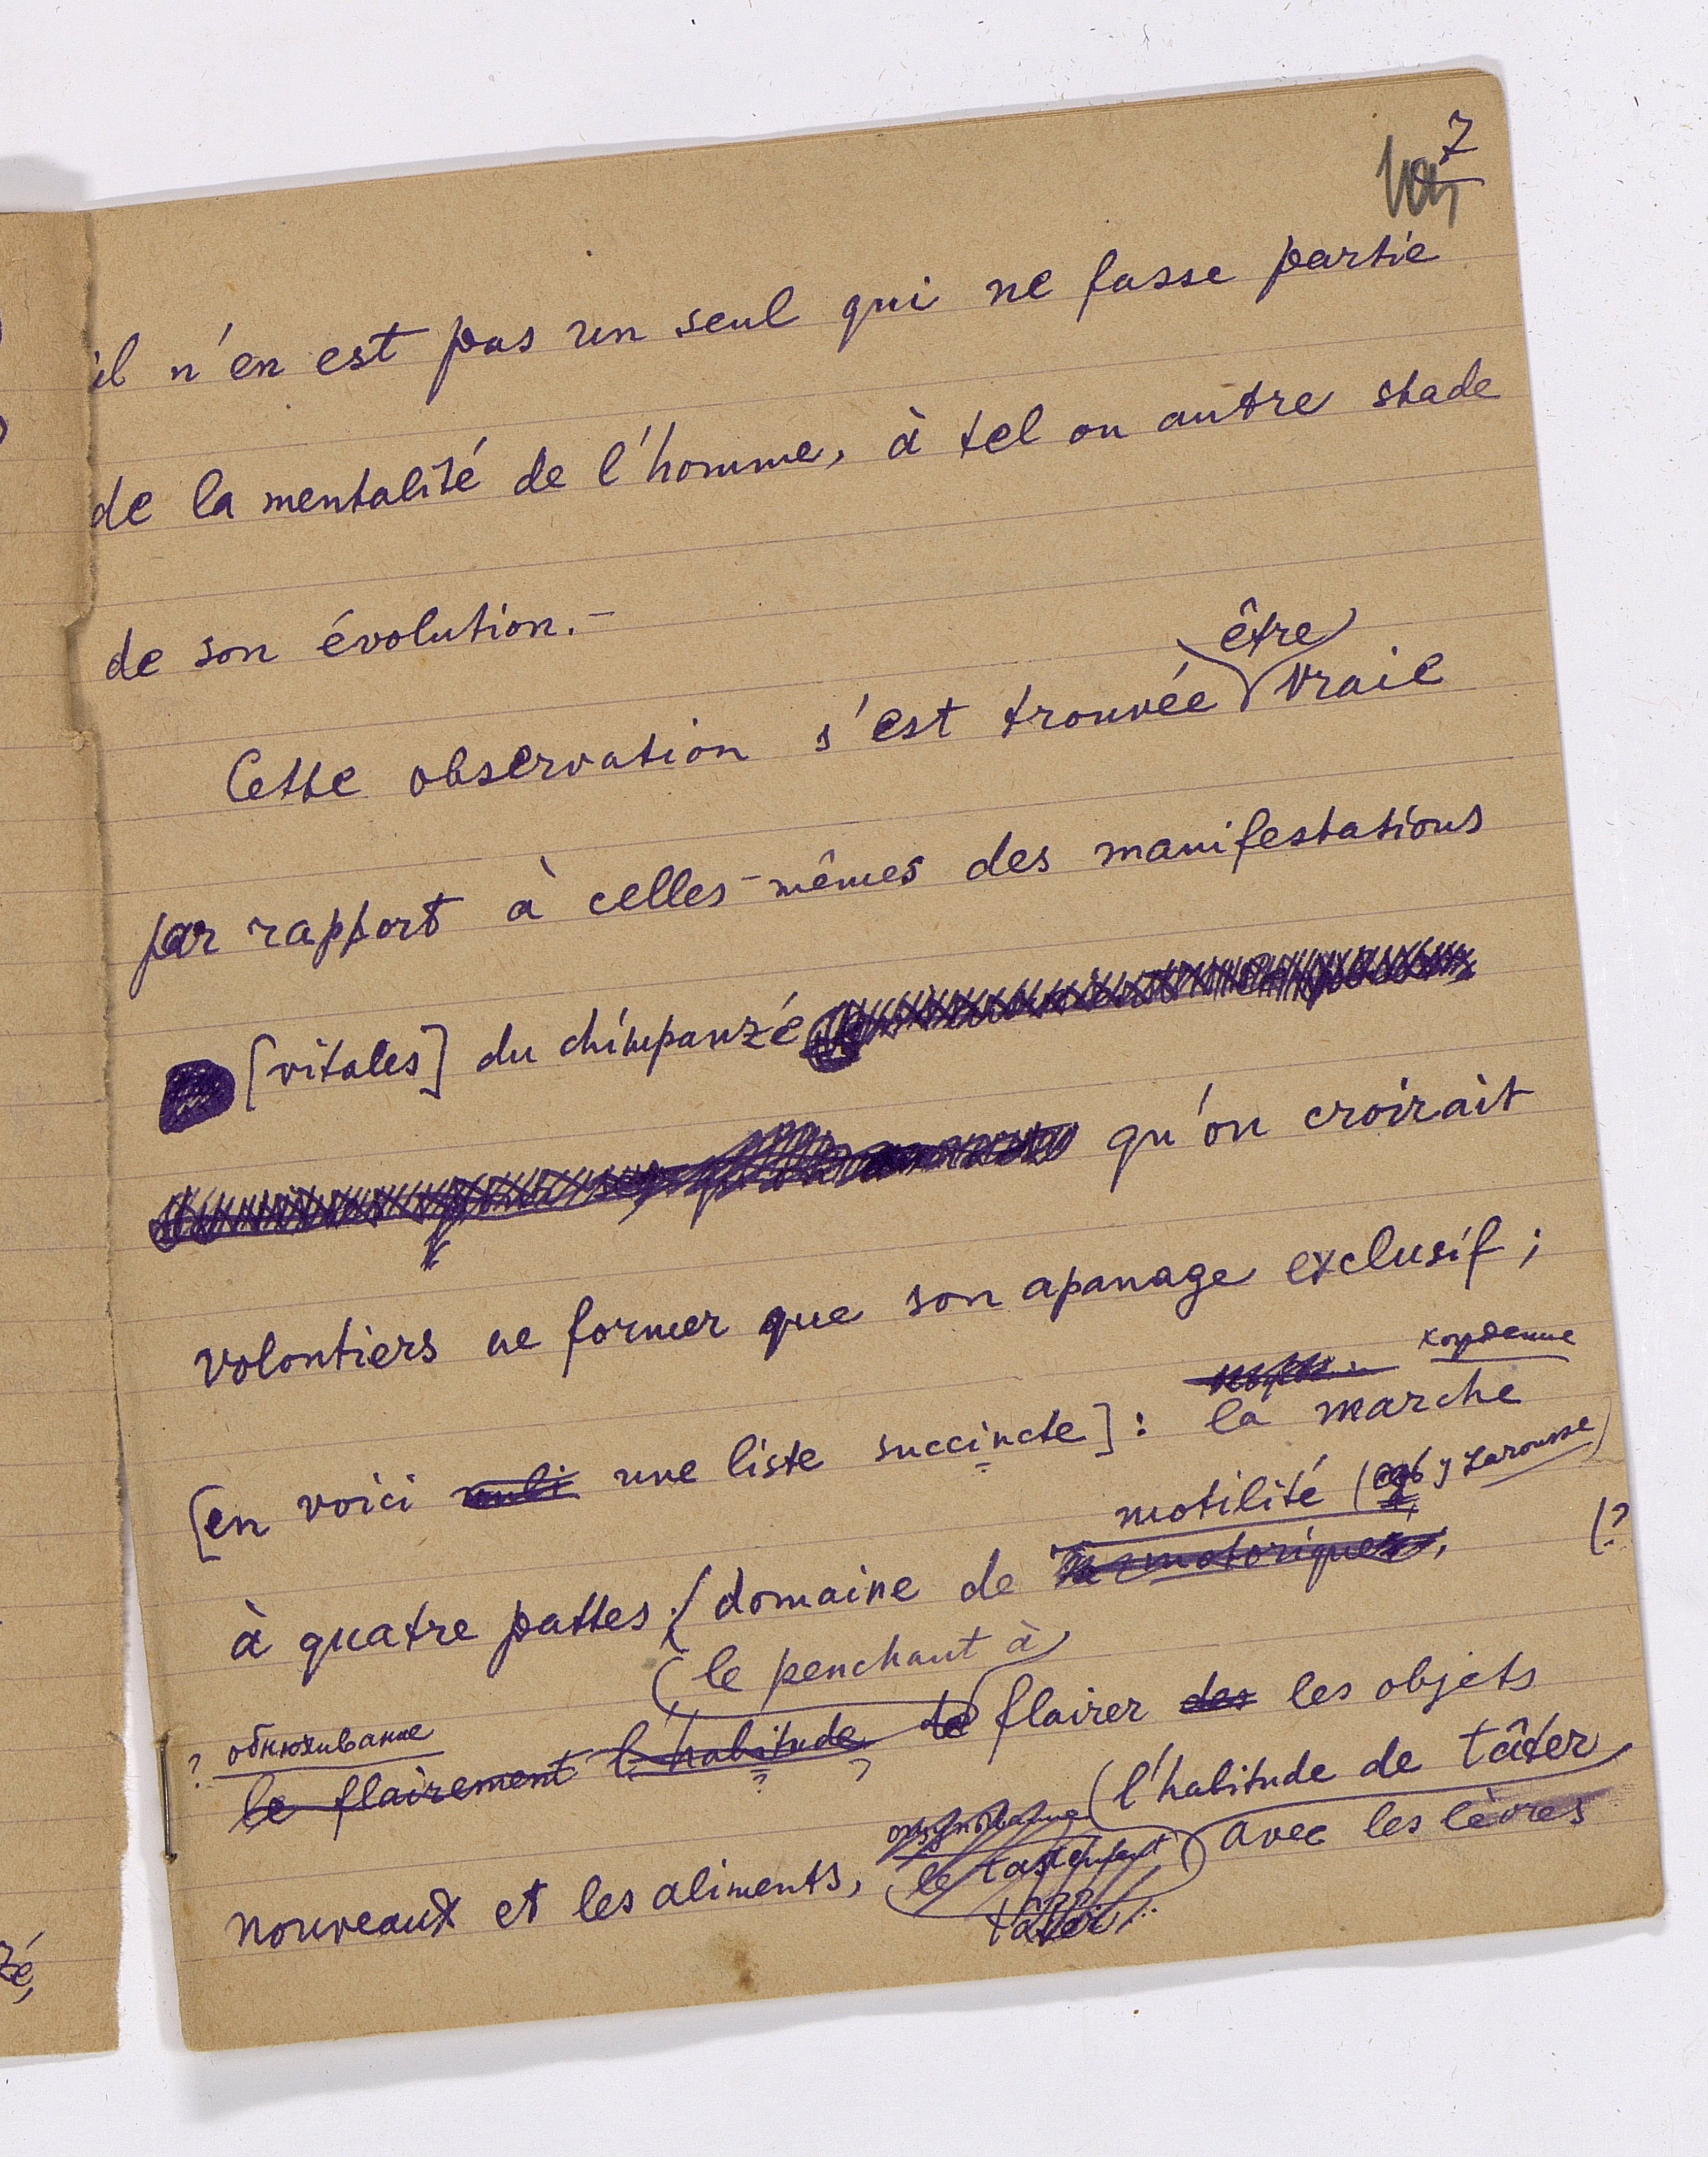 7
il n'en est pas un seul qui ne fasse partie
de la mentalité de l'homme, à tel ou autre stade
de son évolution.-
être
Cette observation s'est trouvée vraie
par rapport à celles-mêmes des manifestations
[vitales] du chimpanzé
qu'on croirait
volontiers ne former que son apanage exclusif;
хождение
[en voici une liste succincte]: la marche
motilité (есть у Larousse)
à quatre pattes (domaine de la motorique, (?
(le penchant à)
? обнюхивание
le flairement l'habitude de flairer des les objets
(l'habitude de tâter
ощупывание
nouveaux et les aliments, avec les lèvres
tâter
zé,